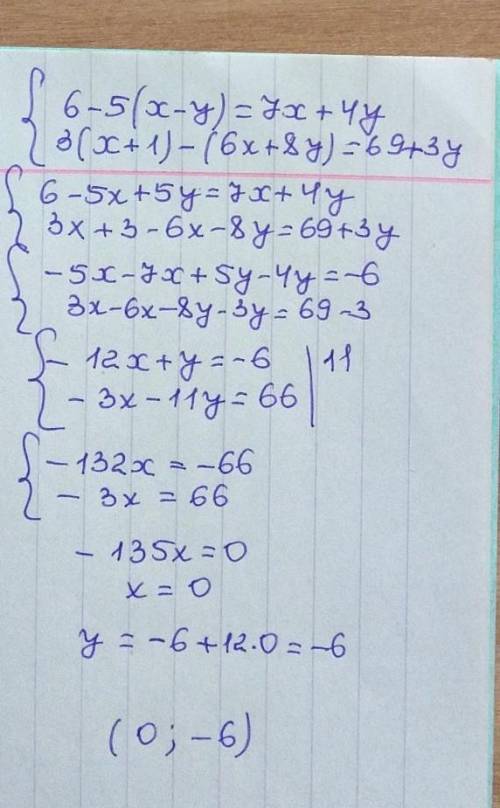 6-5(x-y)=7x+4y
3(x+1)-(6x+8y)=69+3y
6-5x+5y=7x+4y
3x+3-6x-8y=69+3y
-5x-7x+5y-4y=-6
3x-6x-8y-3y=69-3
-12x+y=-6 | 11
-3x-11y=66
-132x=-66
-3x=66
-135x=0
x=0
y=-6+12·0=-6
(0;-6)